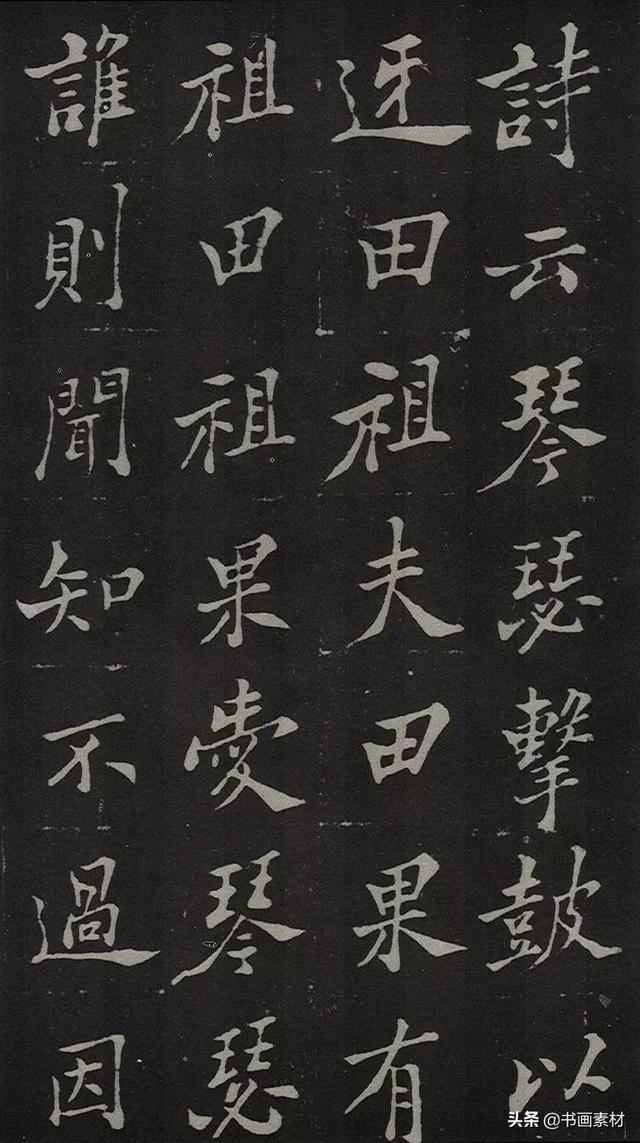 詩云琴瑟擊鼓以
迓田祖夫田果有
祖田祖果愛琴瑟
誰則聞知不過因
头条@书画素材